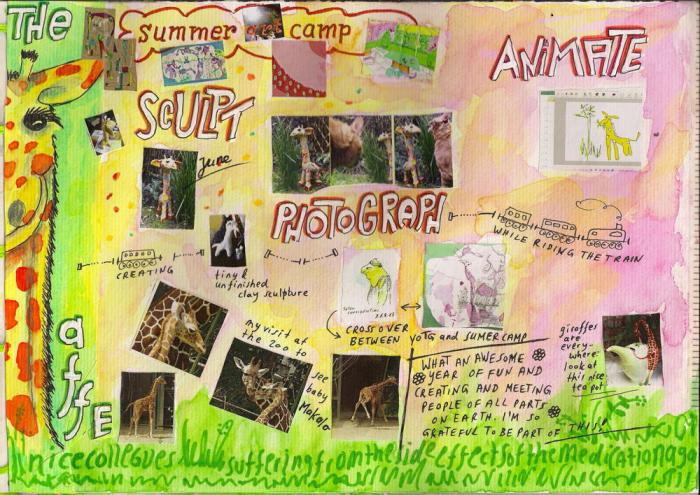 THE
summer art camp
ANiMATE
SCULPT
June
PHOTOGRAPH
WHILE RIDING THE TRAIN
CREATING
tiny &
unfinished
clay sculpture
CROSS OVER
BETWEEN yoTG and SUMERCAMP
my visit at
the zoo to
see
baby
WHAT AN AWESOME
YEAR OF FUN AND
CREATING AND MEETING
PEOPLE OF ALL PARTS
ON EARTH. I'M SO
GRATEFUL TO BE PART OF THIS!
giraffes
are
every-
where:
look at
this nice
tea pot
affE
nice collegues suffering from the side effects of the medication